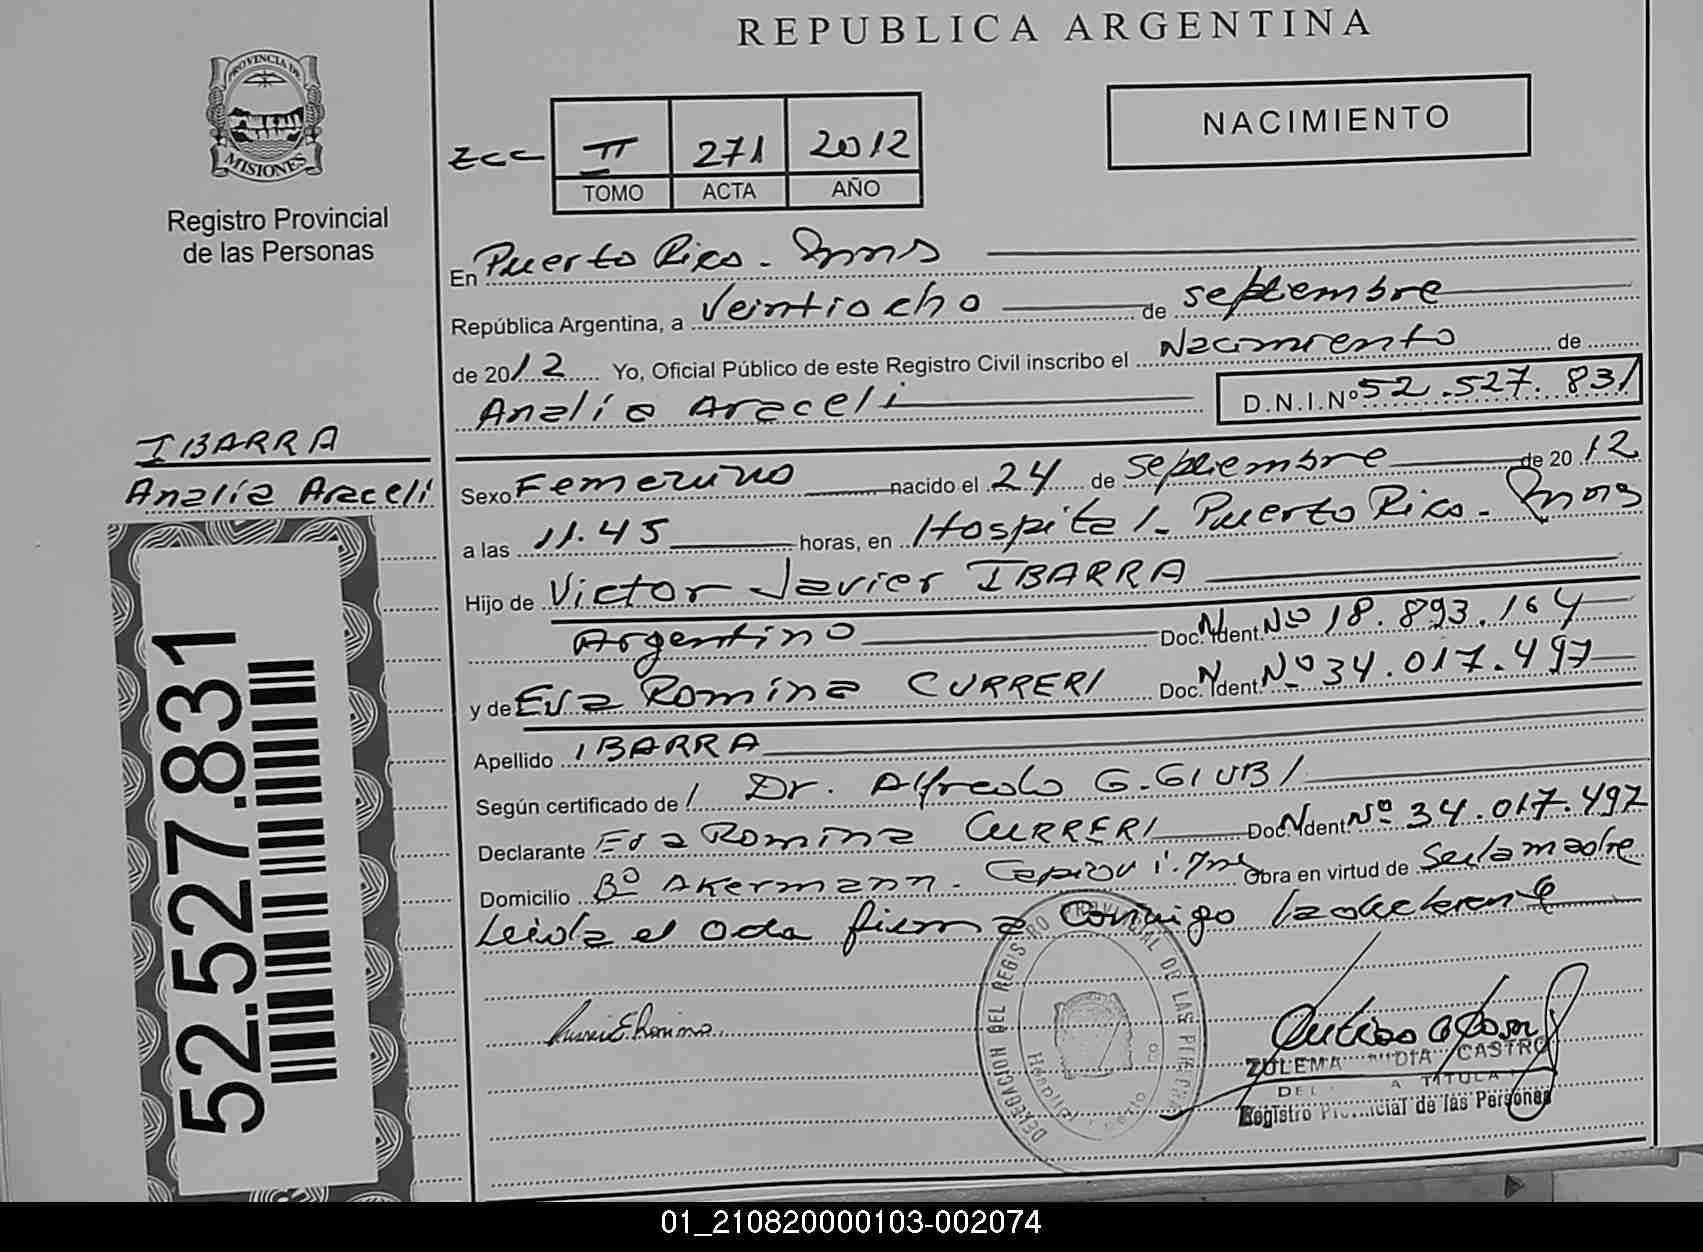 REPUBLICA ARGENTINA
PROVINCIA DE
MISIONES
Registro Provincial
de las Personas
NACIMIENTO
II 271 2012
TOMO ACTA AÑO
En Puerto Rico - Mnes
República Argentina, a Veintiocho de septiembre
de 2012 Yo, Oficial Público de este Registro Civil inscribo el Nacimiento de
Analía Araceli D.N.I.Nº 52.527.831
IBARRA
Analía Araceli
Sexo Femenino nacido el 24 de septiembre de 2012
a las 11.45 horas, en Hospital - Puerto Rico - Mnes
Hijo de Victor Javier IBARRA
Argentino Doc. Ident. Nº 18.893.164
y de Eva Romina CURRERI Doc. Ident. Nº 34.017.497
Apellido IBARRA
Según certificado de / Dr. Alfredo G. GIUBI
Declarante Eva Romina CURRERI Doc. Ident. Nº 34.017.497
Domicilio Bº Akermann - Obra en virtud de Ser la madre
Leida el acta firma conmigo la declarante
52.527.831
DELEGACION DEL REGISTRO PROVINCIAL DE LAS PERSONAS
ZULEMA CASTRO
A TITULA
Registro Provincial de las Personas
01_210820000103-002074